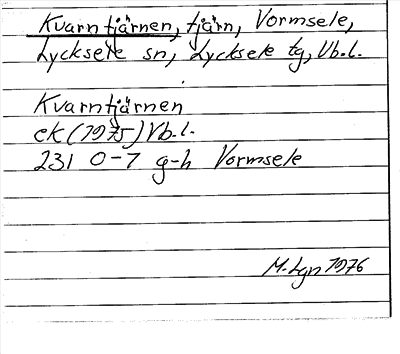 Kvarntjärnen, tjärn, Vormsele,
Lycksele sn, Lycksele tg, Vb.l.
Kvarntjärnen
ek (1975) Vb.l.
231 0-7 g-h Vormsele
M. Lgn 1976